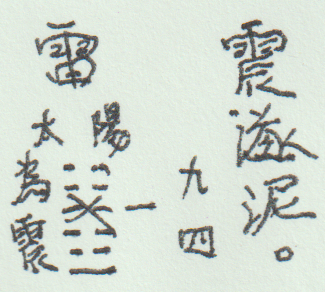 震遂泥。
九四
雷
太陽
一
為震